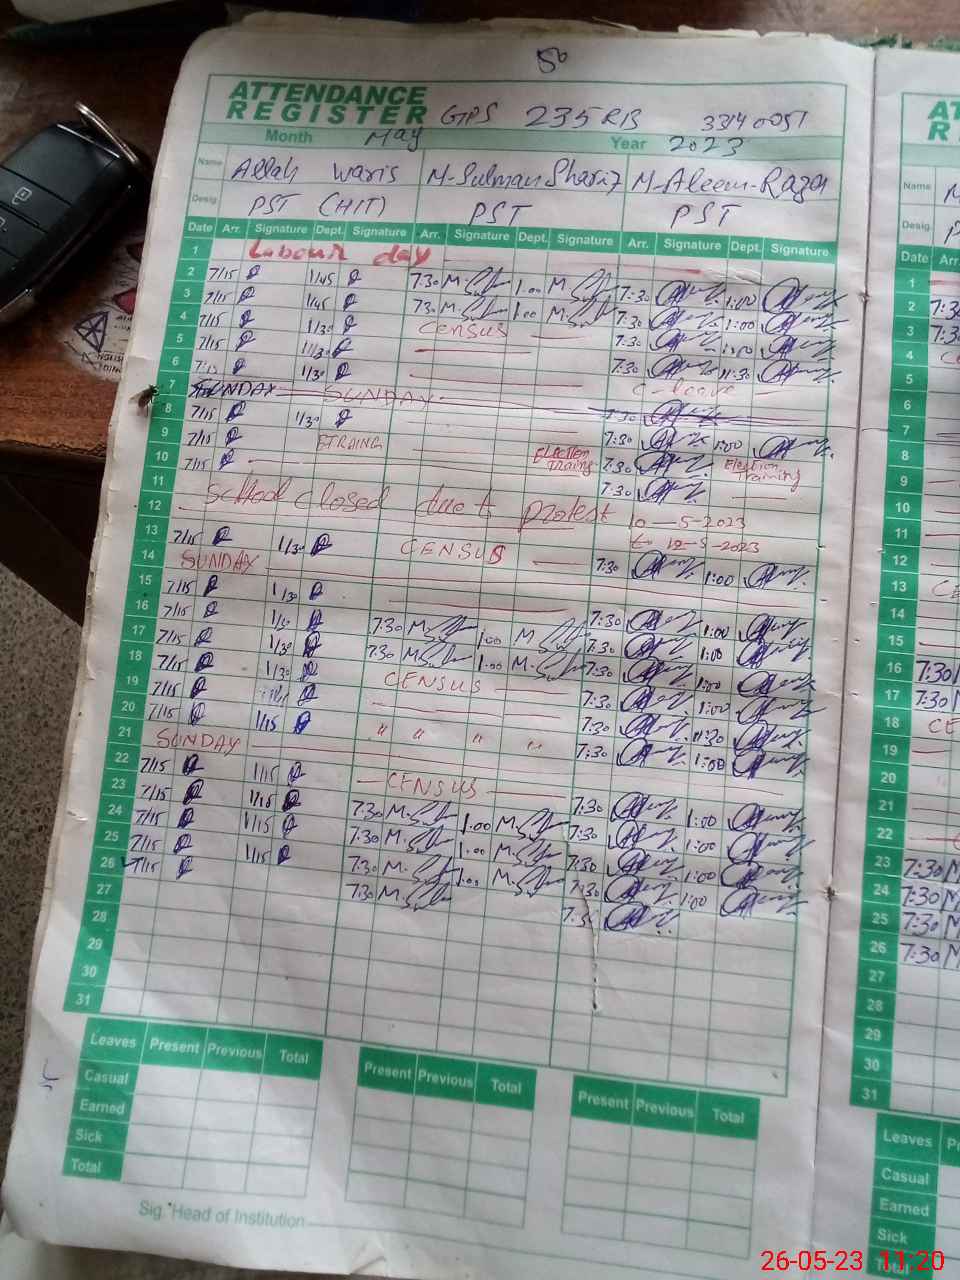 50
ATTENDANCE
REGISTER GPS 235 RB 3340051
Month May Year 2023
Name Allah Waris M-Sulman Sharif M-Aleem-Raza
Desig. PST (H/T) PST PST
Date Arr. Signature Dept. Signature Arr. Signature Dept. Signature Arr. Signature Dept. Signature
1 Labour day
2 7/15 1/45 7:30 1.00 7:30 1:00
3 7/15 1/45 7:30 1.00 7:30 1:00
4 7/15 1/30 Census 7:30 1:00
5 7/15 1/30 7:30 11:30
6 7/15 1/30 C-leave
7 SUNDAY SUNDAY
8 7/15 1/30 7:30 1:00
9 7/15 Election Training 7:30 Election Training
10 7/15 7:30
11 School closed due to protest 10-5-2023
12 to 12-5-2023
13 7/15 1/30 CENSUS 7:30 1:00
14 SUNDAY
15 7/15 1/30 7:30 1:00
16 7/15 7:30 1.00 7:30 1:00
17 7/15 1/30 7:30 1.00 7:30 1:00
18 7/15 1/30 CENSUS 7:30 1:00
19 7/15 7:30 11:30
20 7/15 1/15 " " " " 7:30 1:00
21 SUNDAY
22 7/15 1/15 CENSUS 7:30 1:00
23 7/15 1/15 7:30 1.00 7:30 1:00
24 7/15 1/15 7:30 1.00 7:30 1:00
25 7/15 1/15 7:30 1.00 7:30 1:00
26 7/15 7:30
27
28
29
30
31
Leaves Present Previous Total Present Previous Total Present Previous Total
Casual
Earned
Sick
Total
Sig. Head of Institution
Name
Desig.
Date Arr
1
2 7:30
3 7:30
4
5
6
7
8
9
10
11
12
13
14
15
16 7:30
17 7:30
18
19
20
21
22
23 7:30
24 7:30
25 7:30
26 7:30
27
28
29
30
31
Leaves
Casual
Earned
Sick
Total
26-05-23 11:20